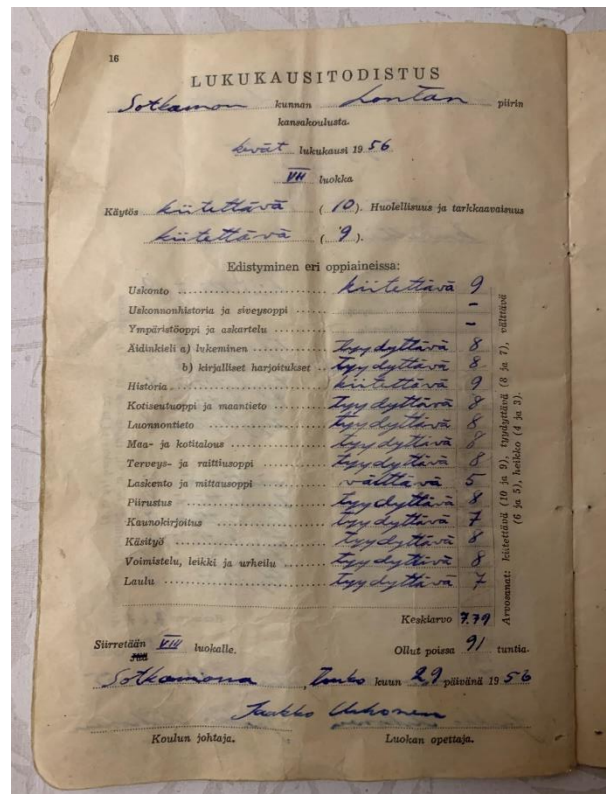 16
LUKUKAUSITODISTUS
Sotkamon kunnan Lontan piirin
kansakoulusta.
kevät lukukausi 1956
VII luokka
Käytös kiitettävä (10). Huolellisuus ja tarkkaavaisuus
kiitettävä (9).
Edistyminen eri oppiaineissa:
Uskonto kiitettävä 9
Uskonnonhistoria ja siveysoppi –
Ympäristöoppi ja askartelu –
Äidinkieli a) lukeminen tyydyttävä 8
b) kirjalliset harjoitukset tyydyttävä 8
Historia kiitettävä 9
Kotiseutuoppi ja maantieto tyydyttävä 8
Luonnontieto tyydyttävä 8
Maa- ja kotitalous tyydyttävä 8
Terveys- ja raittiusoppi tyydyttävä 8
Laskento ja mittausoppi välttävä 5
Piirustus tyydyttävä 8
Kaunokirjoitus tyydyttävä 7
Käsityö tyydyttävä 8
Voimistelu, leikki ja urheilu tyydyttävä 8
Laulu tyydyttävä 7
Arvosanat: kiitettävä (10 ja 9), tyydyttävä (8 ja 7), välttävä
(6 ja 5), heikko (4 ja 3).
Keskiarvo 7.79
Siirretään VIII luokalle. Ollut poissa 91 tuntia.
Sotkamossa, Touko kuun 29 päivänä 1956
Jaakko
Koulun johtaja. Luokan opettaja.